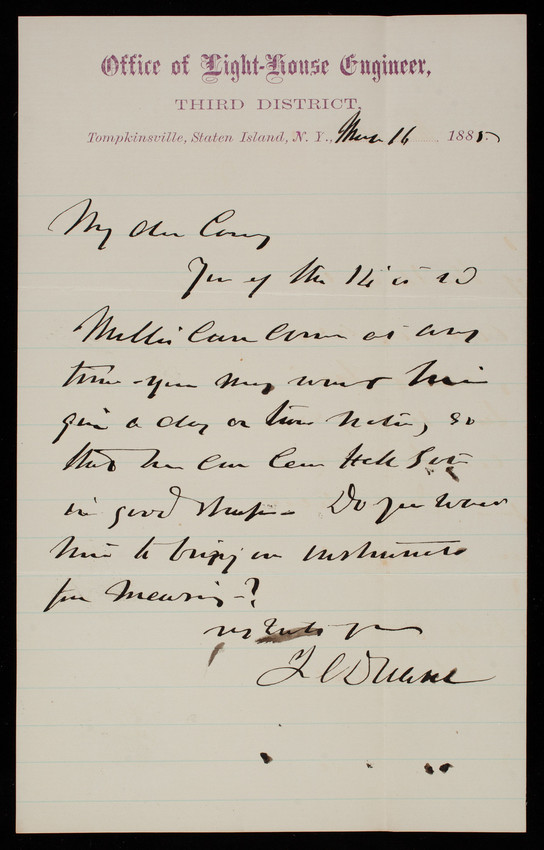 Office of Light-House Engineer,
THIRD DISTRICT,
Tompkinsville, Staten Island, N. Y., Mar 16 1885
My dear Casey
Yrs of the 14 is rd
Millis can come at any
time - you may want him
give a day or two notice, so
that he can leave
in good shape - Do you want
him to bring any instruments
for measuring - ?
yrs
J C Duane